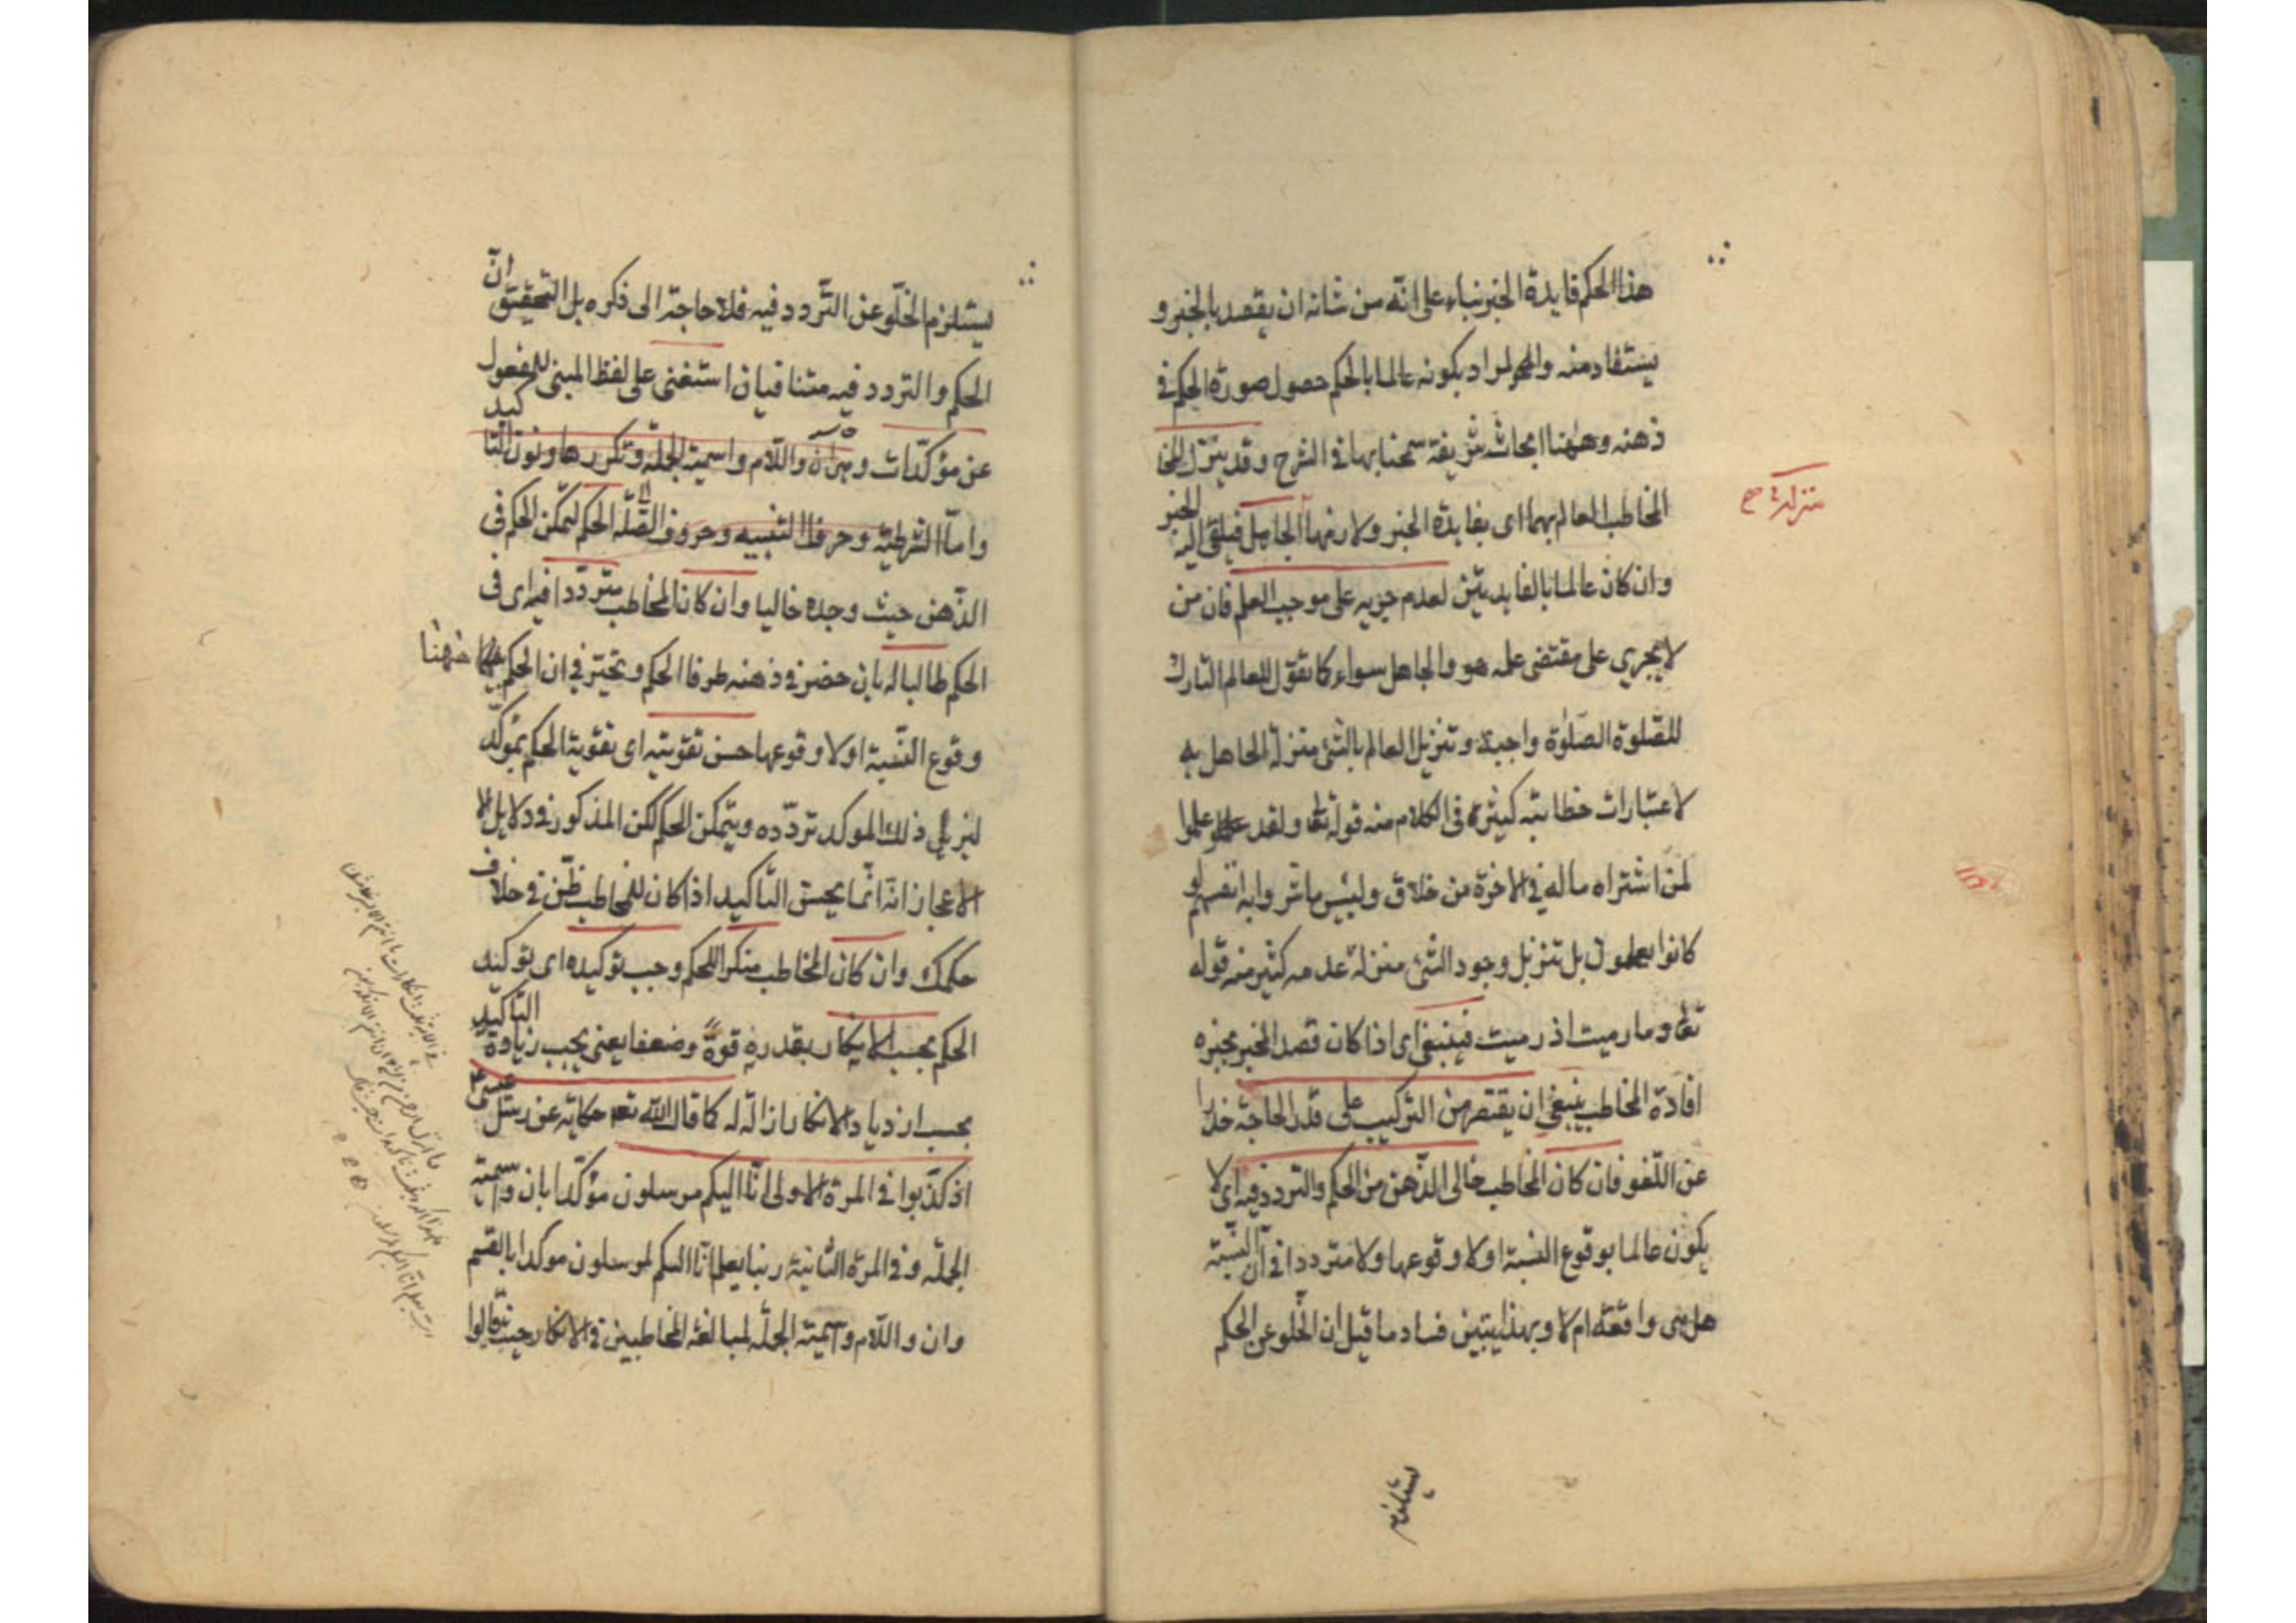 هذا الحكم فايدة الخبر بناء على انّه من شانه ان يقصد بالخبر و
يستفاد منه والمراد بكونه عالما بالحكم حصول صورة الحكم في
ذهنه وههنا ابحاث شريفة سمحنا بها في الشرح وقد ينزل المخا
المخاطب العالم بهما اى بفايدة الخبر ولازمها الجاهل فيلقى اليه الخبر
منزلة صح
وان كان عالما بالفايدتين لعدم جريه على موجب العلم فان من
لا يجري على مقتضى علمه هو والجاهل سواء كما تقول للعالم التارك
للصّلوة الصّلوٰة واجبة وتنزيل العالم بالشئ منزلة الجاهل به
لاعتبارات خطابيّة كثيرة في الكلام منه قوله تعا ولقد علموا
لمن اشتراه ماله في الاخرة من خلاق ولبئس ما شروا به انفسهم لو
كانوا يعلمون بل تنزيل وجود الشئ منزلة عدمه كثير منه قوله
تعا وما رميت اذ رميت فينبغى اى اذا كان قصد المخبر بخبره
افادة المخاطب ينبغى ان يقتصر من التركيب على قدر الحاجة حذرا
عن اللّغو فان كان المخاطب خالى الذّهن من الحكم والتردد فيه اى لا
يكون عالما بوقوع النسبة او لا وقوعها ولا مترددا في انّ النسبة
هل هى واقعة ام لا وبهذا يتبين فساد ما قيل ان الخلو عن الحكم
يستلزم
يستلزم الخلّو عن التّردد فيه فلا حاجة الى ذكره بل التحقيق انّ
الحكم والتردد فيه متنافيان استغنى على لفظ المبنى للمفعول
عن مؤكدّات وهى ان واللّام واسمية الجملة وتكررها ونون التاكيد
وامّا الشرطية وحرفا التنبيه وحروف الصّلة الحكم لتمكن الحكم في
الذّهن حيث وجده خاليا وان كان المخاطب متردّدا فيه اى في
الحكم طالبا له بان حضر في ذهنه طرفا الحكم وتحيّر في ان الحكم بينهما
وقوع النّسبة او لا وقوعها حسن تقويته اى تقوية الحكم بمؤكّد
ليزيل ذلك المؤكد تردّده ويتمكن الحكم لكن المذكور في دلايل الا
الاعجاز انّه انّما يحسن التّاكيد اذا كان للمخاطب ظنّ في خلاف
حكمك وان كان المخاطب منكرا للحكم وجب توكيده اى توكيد
الحكم بحسب الانكار بقدره قوةً وضعفا يعنى يجب زيادة التاكيد
بحسب ازدياد الانكار ازالة له كما قال الله تعا حكاية عن رسل عيسى
اذ كذّبوا في المرة الاولى انّا اليكم مرسلون مؤكّدا بان واسمية
الجملة وفي المرة الثانية ربنا يعلم انّا اليكم لمرسلون موكدا بالقسم
وان واللّام واسمية الجملة لمبالغة المخاطبين في الانكار حيث قالوا